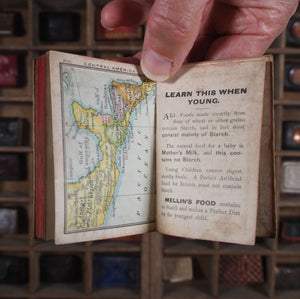 CENTRAL AMERICA
PACIFIC
OCEAN
Gulf of
LEARN THIS WHEN
YOUNG.
ALL Foods made directly from
flour of wheat or other grains
contain Starch, and in fact most
consist mainly of Starch.
The natural food for a baby is
Mother's Milk, and this con-
tains no Starch.
Young Children cannot digest
starchy foods. A Perfect Artificial
Food for Infants must not contain
Starch.
MELLIN'S FOOD contains
no Starch and makes a Perfect Diet
for the youngest child.